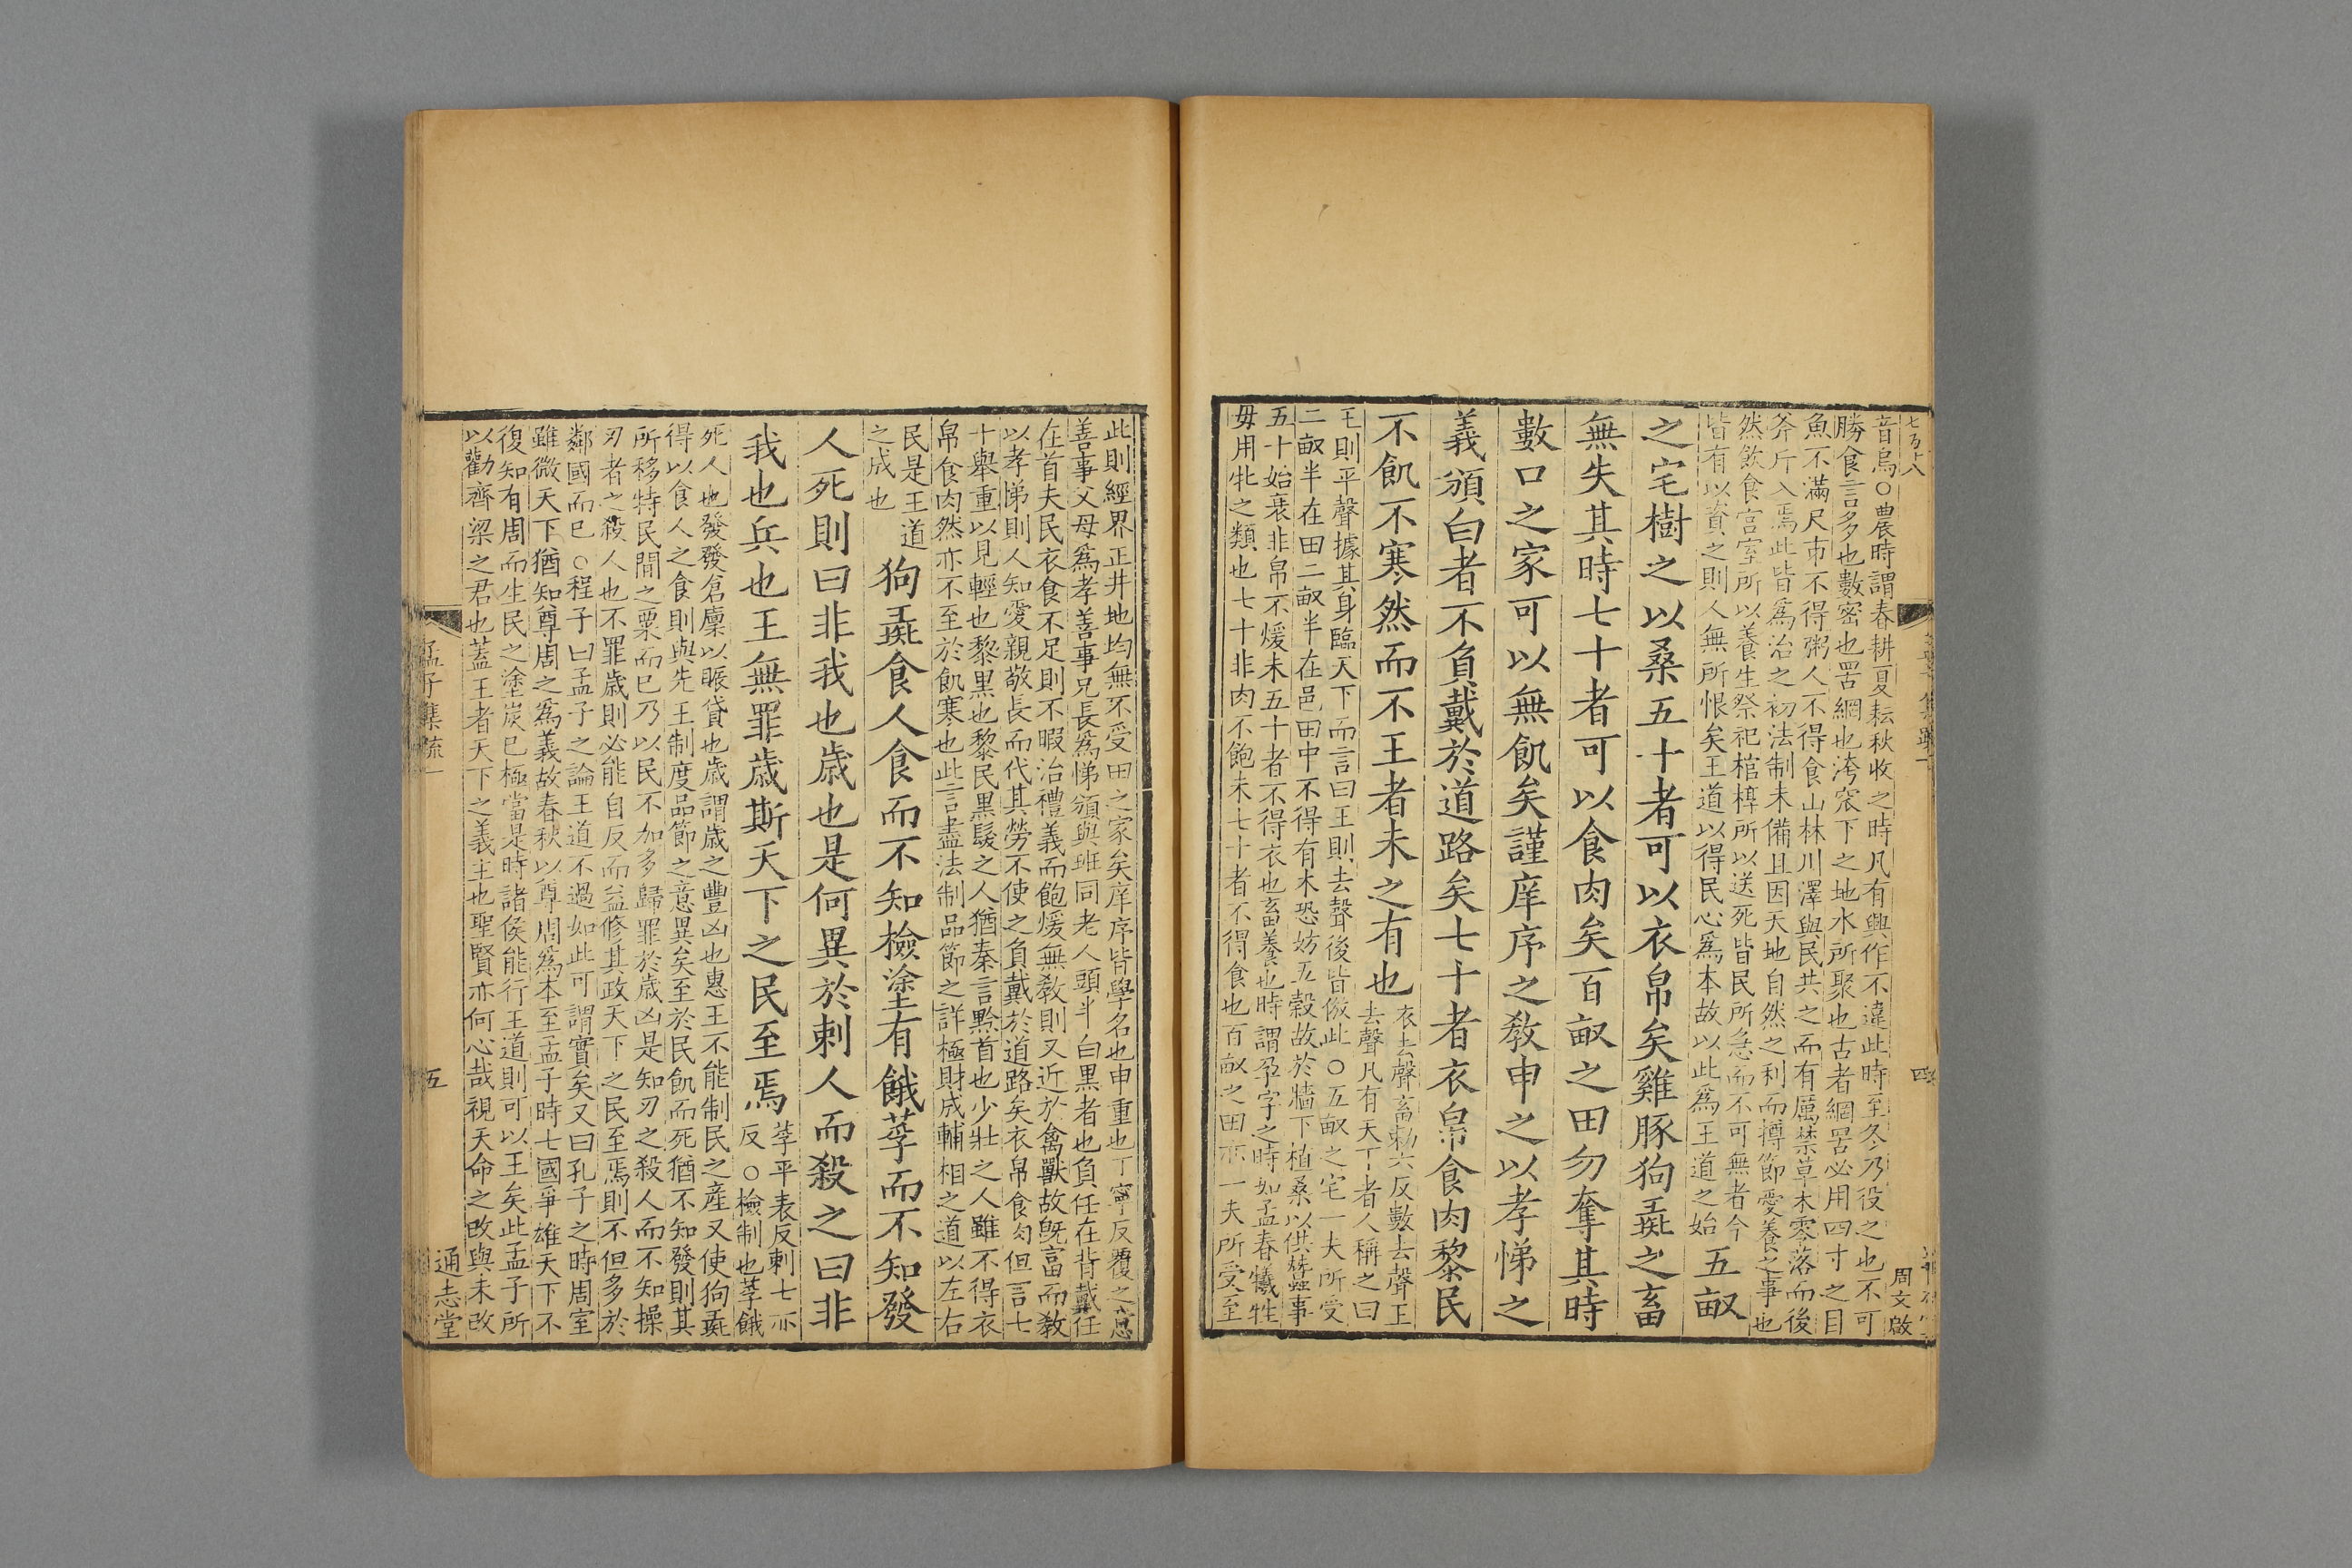 音烏○農時謂春耕夏耘秋收之時凡有興作不違此時至冬乃役之也不可
勝食言多也數密也罟網也洿窊下之地水所聚也古者網罟必用四寸之目
魚不滿尺市不得粥人不得食山林川澤與民共之而有厲禁草木零落而後
斧斤入焉此皆爲治之初法制未備且因天地自然之利而撙節愛養之事也
然飲食宮室所以養生祭祀棺椁所以送死皆民所急而不可無者今
皆有以資之則人無所恨矣王道以得民心爲本故以此爲王道之始
五畝
之宅樹之以桑五十者可以衣帛矣雞豚狗彘之畜
無失其時七十者可以食肉矣百畝之田勿奪其時
數口之家可以無飢矣謹庠序之教申之以孝悌之
義頒白者不負戴於道路矣七十者衣帛食肉黎民
不飢不寒然而不王者未之有也
衣去聲畜勑六反數去聲王
去聲凡有天下者人稱之曰
王則平聲據其身臨天下而言曰王則去聲後皆倣此○五畝之宅一夫所受
二畝半在田二畝半在邑田中不得有木恐妨五穀故於牆下植桑以供蠶事
五十始衰非帛不煖未五十者不得衣也畜養也時謂孕字之時如孟春犧牲
毋用牝之類也七十非肉不飽未七十者不得食也百畝之田亦一夫所受至
七百十八
四
周文啟
此則經界正井地均無不受田之家矣庠序皆學名也申重也丁寧反覆之意
善事父母爲孝善事兄長爲悌頒與班同老人頭半白黑者也負任在背戴任
在首夫民衣食不足則不暇治禮義而飽煖無教則又近於禽獸故旣富而教
以孝悌則人知愛親敬長而代其勞不使之負戴於道路矣衣帛食肉但言七
十舉重以見輕也黎黑也黎民黑髮之人猶秦言黔首也少壯之人雖不得衣
帛食肉然亦不至於飢寒也此言盡法制品節之詳極財成輔相之道以左右
民是王道
之成也
狗彘食人食而不知檢塗有餓莩而不知發
人死則曰非我也歲也是何異於刺人而殺之曰非
我也兵也王無罪歲斯天下之民至焉
莩平表反刺七亦
反○檢制也莩餓
死人也發發倉廩以賑貸也歲謂歲之豐凶也惠王不能制民之產又使狗彘
得以食人之食則與先王制度品節之意異矣至於民飢而死猶不知發則其
所移特民間之粟而已乃以民不加多歸罪於歲凶是知刃之殺人而不知操
刃者之殺人也不罪歲則必能自反而益修其政天下之民至焉則不但多於
鄰國而已○程子曰孟子之論王道不過如此可謂實矣又曰孔子之時周室
雖微天下猶知尊周之爲義故春秋以尊周爲本至孟子時七國爭雄天下不
復知有周而生民之塗炭已極當是時諸侯能行王道則可以王矣此孟子所
以勸齊梁之君也蓋王者天下之義主也聖賢亦何心哉視天命之改與未改
孟子集疏一
五
通志堂